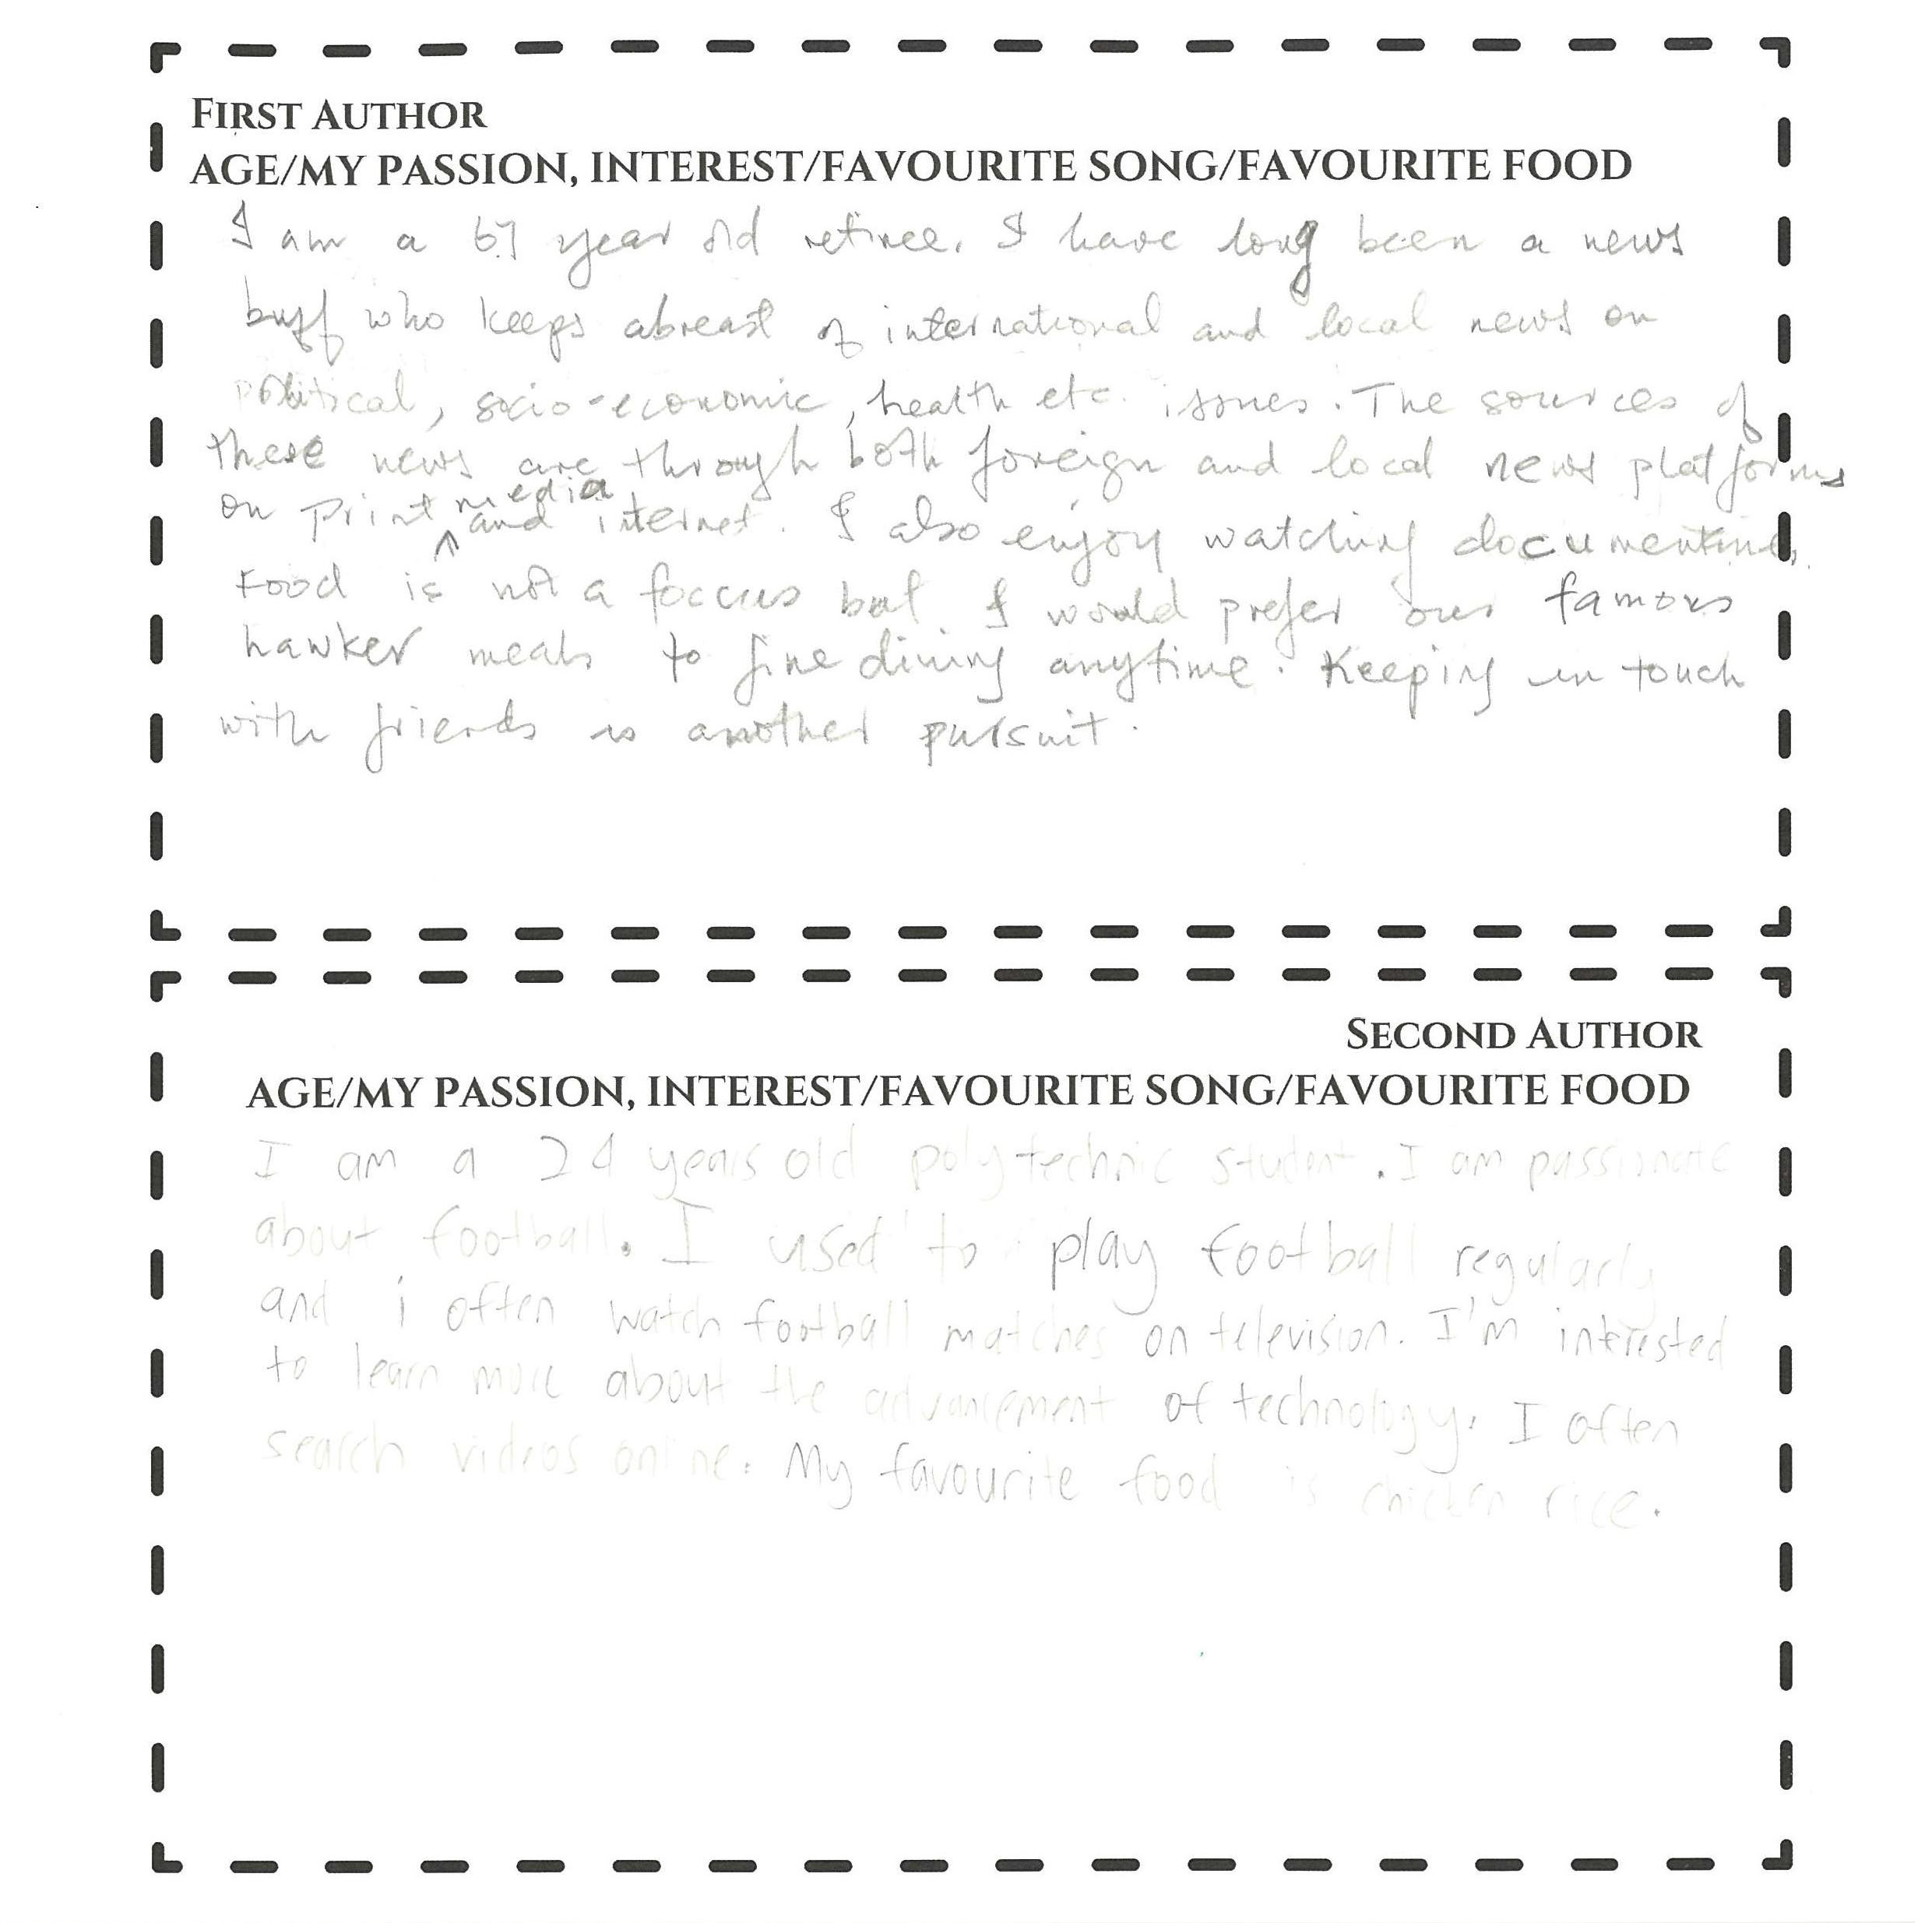 FIRST AUTHOR
AGE/MY PASSION, INTEREST/FAVOURITE SONG/FAVOURITE FOOD
I am a 67 year old retiree. I have long been a news
buff who keeps abreast of international and local news on
political, socio-economic, health etc. issues. The sources of
these news are through both foreign and local news platforms
on print media and internet. I also enjoy watching
Food is not a foccus but I would prefer our famous
hawker meals to fine dining anytime. Keeping in touch
with friends is another pursuit.
SECOND AUTHOR
AGE/MY PASSION, INTEREST/FAVOURITE SONG/FAVOURITE FOOD
I am a 24 years old polytechnic student. I am passionate
about football. I used to play football regularly
and i often watch football matches on television. I'm intrested
to learn more about the advancement of technology. I often
search videos online. My favourite food is chicken rice.